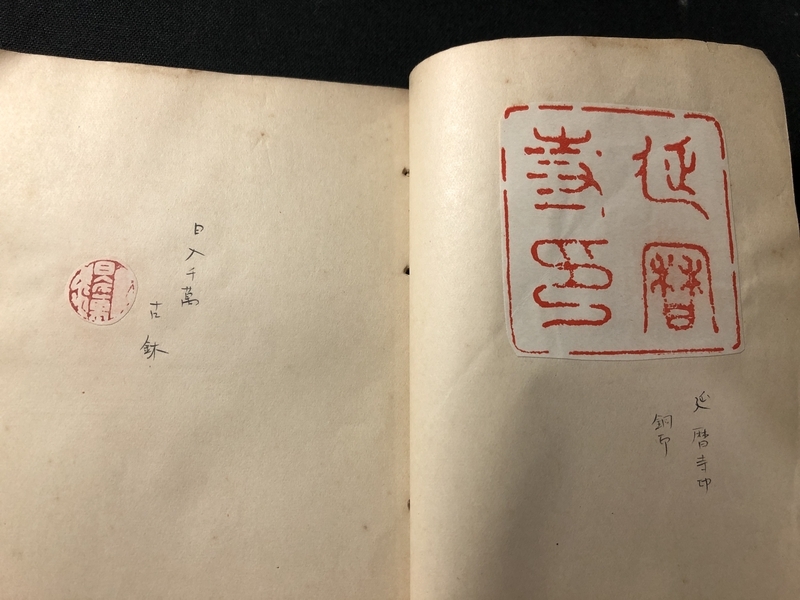 延暦
寺印
延暦寺印
銅印
日入千萬
古鉥